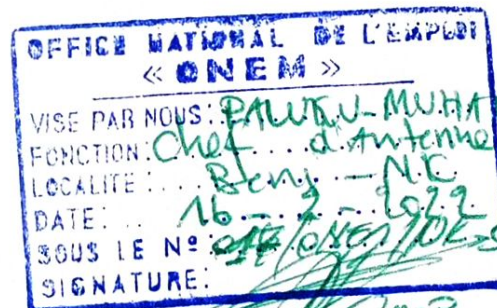 OFFICE NATIONAL DE L'EMPLOI
« ONEM »
VISE PAR NOUS: PALUKU-MUHA
FONCTION: Chef d'Antenne
LOCALITE: Beni - N.K
DATE: 16 - 2 - 2022
SOUS LE Nº
SIGNATURE: